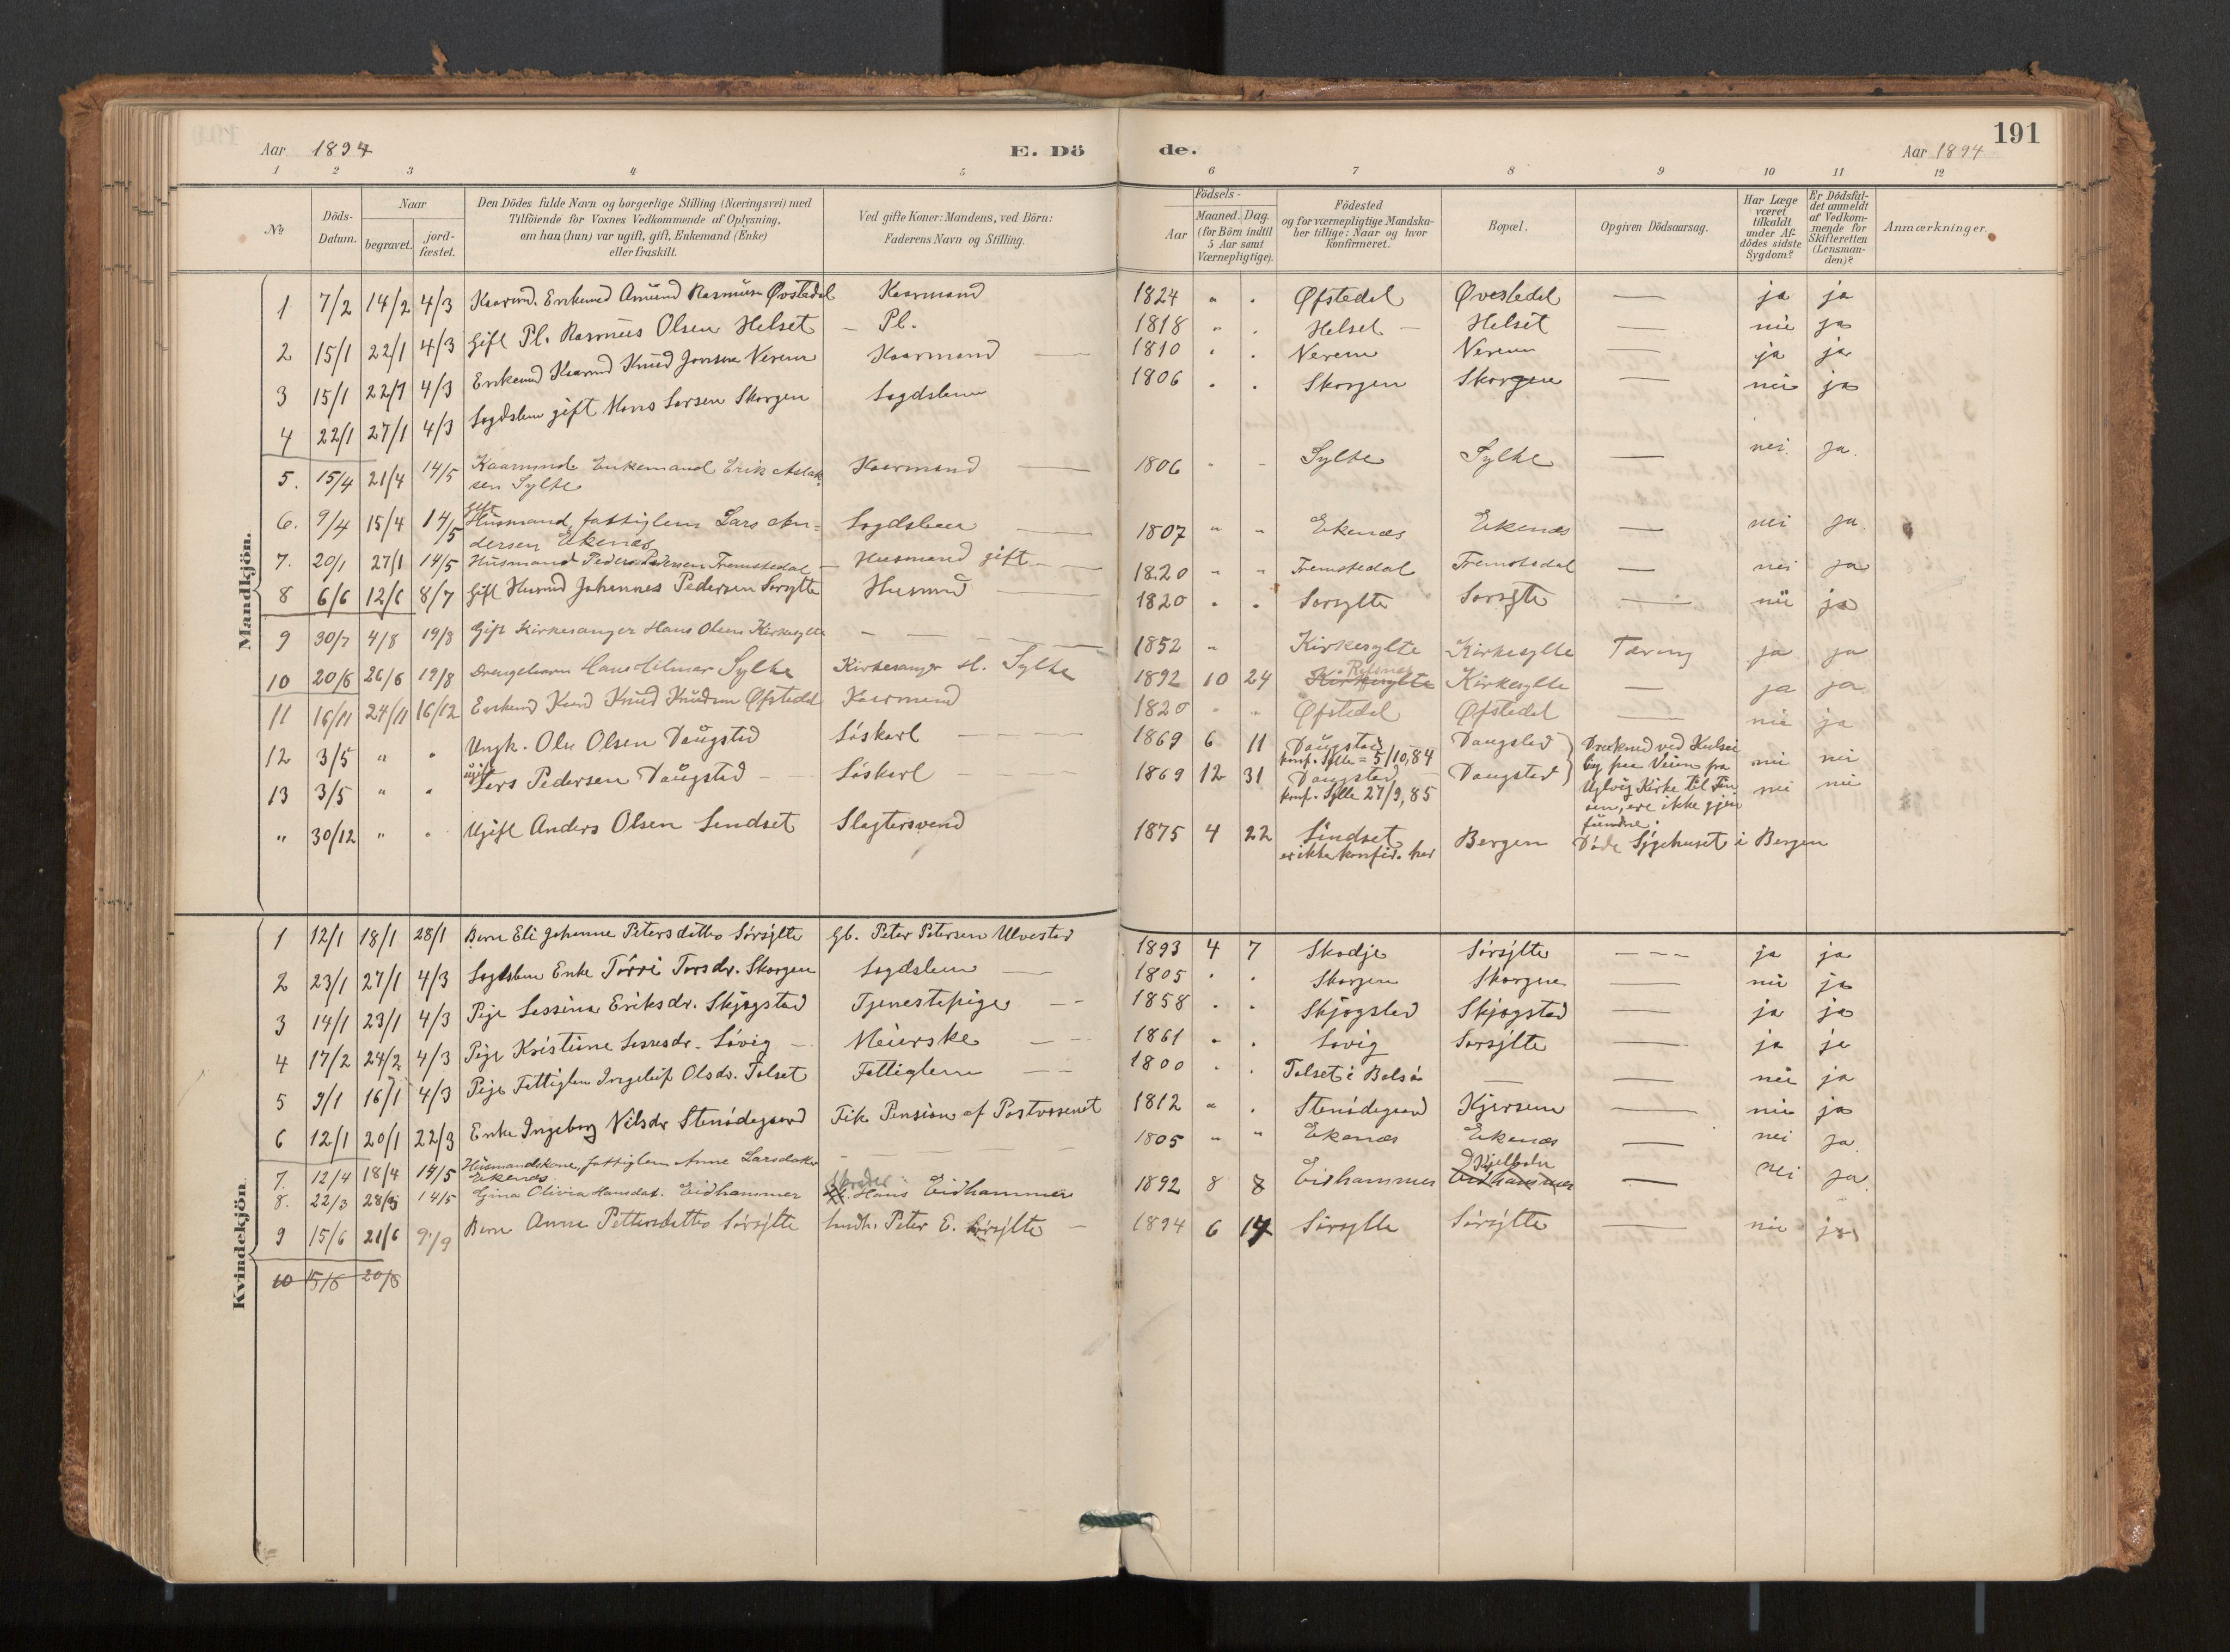 191
Aar 1894
E. Dö
de.
Aar 1894
1 2 3 4 5 6 7 8 9 10 11 12
No
Döds-Datum.
Naar
begravet.
jord-fæstet.
Den Dödes fulde Navn og borgerlige Stilling (Næringsvei) med
Tilföiende for Voxnes Vedkommende af Oplysning,
om han (hun) var ugift, gift, Enkemand (Enke)
eller fraskilt.
Ved gifte Koner: Mandens, ved Börn:
Faderens Navn og Stilling.
Födsels-
Aar
Maaned. Dag.
(for Börn indtil
5 Aar samt
Værnepligtige).
Födested
og for værnepligtige Mandska-
ber tillige: Naar og hvor
Konfirmeret.
Bopæl.
Opgiven Dödsaarsag.
Har Læge
været
tilkaldt
under Af-
dödes sidste
Sygdom?
Er Dödsfal-
det anmeldt
af Vedkom-
mende for
Skifteretten
(Lensman-
den)?
Anmærkninger.
Mandkjön.
1 7/2 14/2 4/3 Kaarmd. Enkemd Amund Rasmusen Øvstedal Kaarmand 1824 " . Øfstedal Øvestedal — ja ja
2 15/1 22/1 4/3 Gift Pl. Rasmus Olsen Helset — Pl. 1818 " . Helset — Helset — nei ja
3 15/1 22/1 4/3 Enkemd Kaarmd Knud Jonsen Kaarmand — 1810 . . — ja ja
4 22/1 27/1 4/3 Lægdslem gift Hans Larsen Skorgen Lægdslem 1806 . . Skorgen Skorgen — nei ja
5. 15/4 21/4 14/5 Kaarmand Enkemand Erik Aslak-
sen Sylte Kaarmand — 1806 " - Sylte Sylte — nei. ja.
6. 9/4 15/4 14/5 gift
Husmand, fattiglem Lars An=
dersen Ekenæs Lægdslem — 1807 " " Ekenæs Ekenæs — nei ja.
7. 20/1 27/1 14/5 Husmand Peder Pedersen Fremstedal — Husmand gift — 1820 " " Fremstedal Fremstedal — nei ja
8 6/6 12/6 8/7 Gift Husmd Johannes Pedersen Sørsylte Husmd — 1820 . . Sørsylte Sørsylte — nei ja
9 30/7 4/8 19/8 Gift Kirkesanger Hans Olsen Kirkesylte — — — 1852 " Kirkesylte Kirkesylte Tæring ja ja
10 20/6 26/6 19/8 Drengebarn Hans Hilmar Sylte Kirkesanger H. Sylte 1892 10 24 Kirkesylte Kirkesylte — ja ja
11 16/11 24/11 16/12 Enkemd Kaarmd Knud Knudsen Øfstedal Kaarmand 1820 " " Øfstedal Øfstedal — nei ja
12 3/5 " " Ungk. Ole Olsen Daugstad Löskarl — — — 1869 6 11 Daugstad
konf. Sylte = 5/10, 84 Daugstad nei nei
13 3/5 " " ugift
Lars Pedersen Daugstad — Löskarl — — — 1869 12 31 Daugstad
konf. Sylte 27/9, 85 Daugstad nei nei
Drukned ved
paa Veien fra
Kirke til
ere ikke gjen
fundne.
" 30/12 " " Ugift Anders Olsen Lindset Slagtersvend 1875 4 22 Lindset
er ikke konfir. her Bergen Døde Sygehuset i Bergen
Kvindekjön
1 12/1 18/1 28/1 Barn Eli Johanne Petersdatter Sörsylte Gb. Peter Petersen Ulvestad 1893 4 7 Skodje Sörsylte — — — ja ja
2 23/1 27/1 4/3 Lægdslem Enke Torsdr. Skorgen Lægdslem — 1805 . . Skorgen Skorgen — nei ja
3 14/1 23/1 4/3 Pige Lessina Eriksdr. Skjegstad Tjenestepige — 1858 . . Skjegstad Skjegstad — ja ja
4 17/2 24/2 4/3 Pige Kristine Larsdr. Lövig — Meierske — 1861 . . Lovig Sørsylte — ja ja
5 9/1 16/1 4/3 Pige Fattiglem Olsdr. Talset Fattiglem — 1800 . . Talset i Bolsö — — nei ja
6 12/1 20/1 22/3 Enke Ingeborg Nilsdr Stenödegaard Fik Pension af Postvæsenet 1812 " . Stenödegaard Kjersem — nei ja
7. 12/4 18/4 14/5 Husmandskone, fattiglem Anne Larsdatter
Ekenæs — — — 1805 " " Ekenæs Ekenæs — nei ja.
8. 22/3 28/3 14/5 Gina Olivia Hansdat. Eidhammer Hans Eidhammer 1892 8 8 Eidhammer Eidhammer — nei ja.
9 15/6 21/6 9/9 Barn Anna Pettersdatter Sörsylte Peter E. Sörsylte — 1894 6 14 Sörsylte Sörsylte — nei ja
10 15/6 20/6